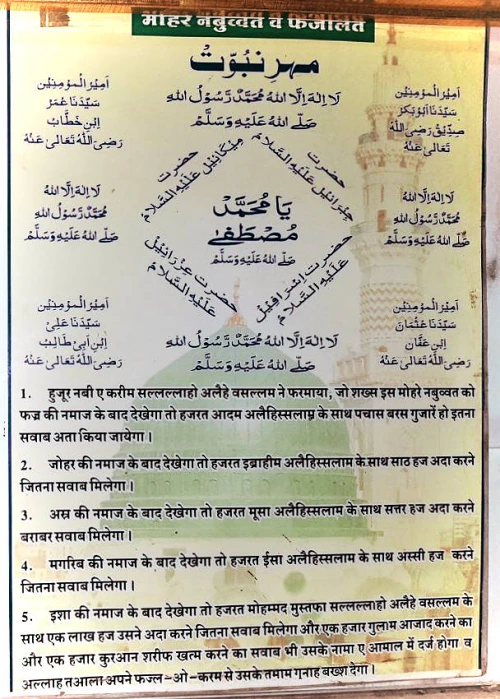 मोहर नबुव्वत व फजीलत
مہر نبوّت
اَمِیْرُ الْمُؤمِنِیْن
سَیِّدُنَا عُمَرْ
اِبنِ خَطَّابْ
رَضِیَ اللّٰہُ تَعَالیٰ عَنْہُ
لَا اِلٰہَ اِلَّا اللّٰہُ مُحَمَّدٌ رَّسُوْلُ اللّٰہِ
صَلَّے اللّٰہُ عَلَیْہِ وَسَلَّمْ
اَمِیْرُ الْمُؤمِنِیْن
سَیِّدُنَا اَبُوْبَکَرْ
صِدِّیْق رَضِیَ اللّٰہُ
تَعَالیٰ عَنْہُ
حضرت
میکائیل عَلَیْہِ السَّلَامْ
حضرت
جبرائیل عَلَیْہِ السَّلَامْ
لَا اِلٰہَ اِلَّا اللّٰہُ
مُحَمَّدٌ رَّسُوْلُ اللّٰہِ
صَلَّے اللّٰہُ عَلَیْہِ وَسَلَّمْ
یَا مُحَمَّدْ
مُصْطَفٰے
صَلَّے اللّٰہُ عَلَیْہِ وَسَلَّمْ
لَا اِلٰہَ اِلَّا اللّٰہُ
مُحَمَّدٌ رَّسُوْلُ اللّٰہِ
صَلَّے اللّٰہُ عَلَیْہِ وَسَلَّمْ
حضرت عزرائیل
عَلَیْہِ السَّلَامْ
حضرت اسرافیل
عَلَیْہِ السَّلَامْ
اَمِیْرُ الْمُؤمِنِیْن
سَیِّدُنَا عَلِیْ
اِبْنِ اَبِیْ طَالِبْ
رَضِیَ اللّٰہُ تَعَالیٰ عَنْہُ
لَا اِلٰہَ اِلَّا اللّٰہُ مُحَمَّدٌ رَّسُوْلُ اللّٰہِ
صَلَّے اللّٰہُ عَلَیْہِ وَسَلَّمْ
اَمِیْرُ الْمُؤمِنِیْن
سَیِّدُنَا عُثْمَانْ
اِبْنِ عَفَّانْ
رَضِیَ اللّٰہُ تَعَالیٰ عَنْہُ
1. हुजूर नबी ए करीम सल्लल्लाहो अलैहे वसल्लम ने फरमाया, जो शख्स इस मोहरे नबुव्वत को
फज्र की नमाज के बाद देखेगा तो हजरत आदम अलैहिस्सलाम के साथ पचास बरस गुजारें हो इतना
सवाब अता किया जायेगा।
2. जोहर की नमाज के बाद देखेगा तो हजरत इब्राहीम अलैहिस्सलाम के साथ साठ हज अदा करने
जितना सवाब मिलेगा।
3. अस्र की नमाज के बाद देखेगा तो हजरत मूसा अलैहिस्सलाम के साथ सत्तर हज अदा करने
बराबर सवाब मिलेगा।
4. मगरिब की नमाज के बाद देखेगा तो हजरत ईसा अलैहिस्सलाम के साथ अस्सी हज करने
जितना सवाब मिलेगा।
5. इशा की नमाज के बाद देखेगा तो हजरत मोहम्मद मुस्तफा सल्लल्लाहो अलैहे वसल्लम के
साथ एक लाख हज उसने अदा करने जितना सवाब मिलेगा और एक हजार गुलाम आजाद करने का
और एक हजार कुरआन शरीफ खत्म करने का सवाब भी उसके नामा ए आमाल में दर्ज होगा व
अल्लाह तआला अपने फज्ल-ओ-करम से उसके तमाम गुनाह बख्श देगा।